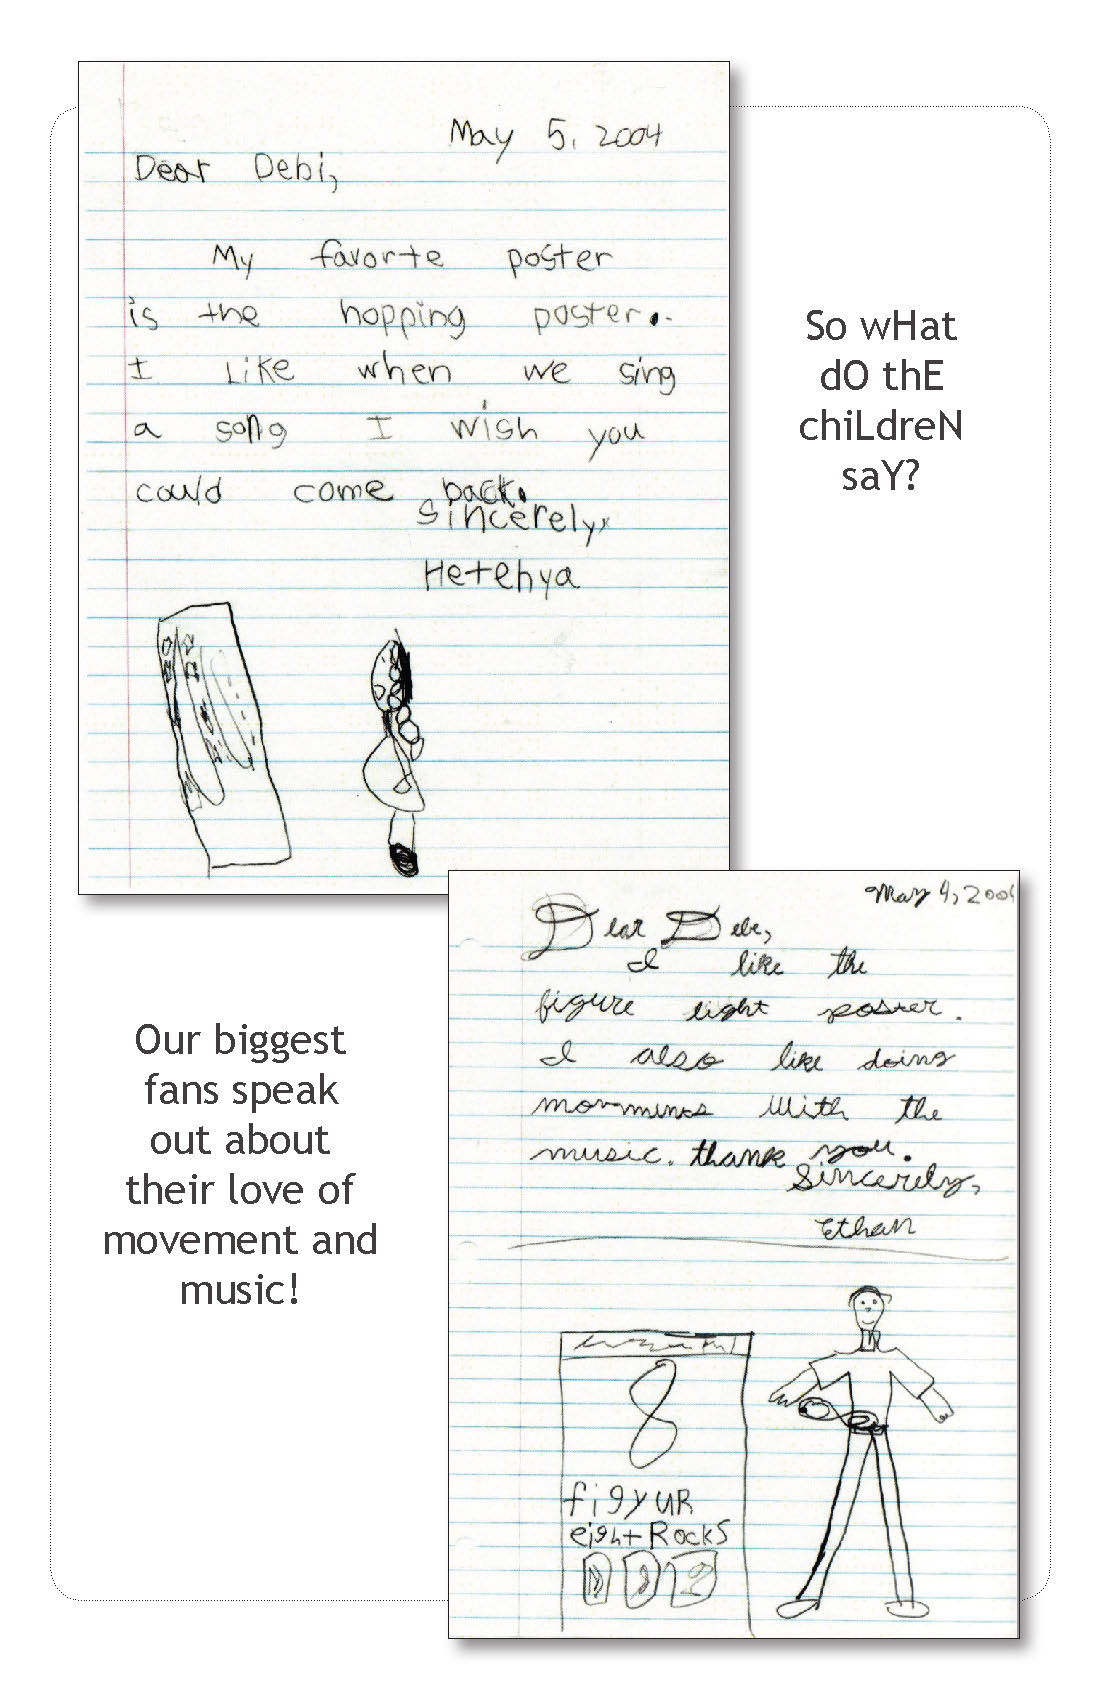 May 5, 2004
Dear Debi,
My favorte poster
is the hopping poster.
I Like when we sing
a song I wish you
could come back.
Sincerely,
Hetehya
So wHat
dO thE
chiLdreN
saY?
May 4, 2004
Dear Debe,
I like the
figure eight poster.
I also like doing
with the
music. thank you.
Sincerely,
Ethan
8
figyuR
eight Rocks
Our biggest
fans speak
out about
their love of
movement and
music!